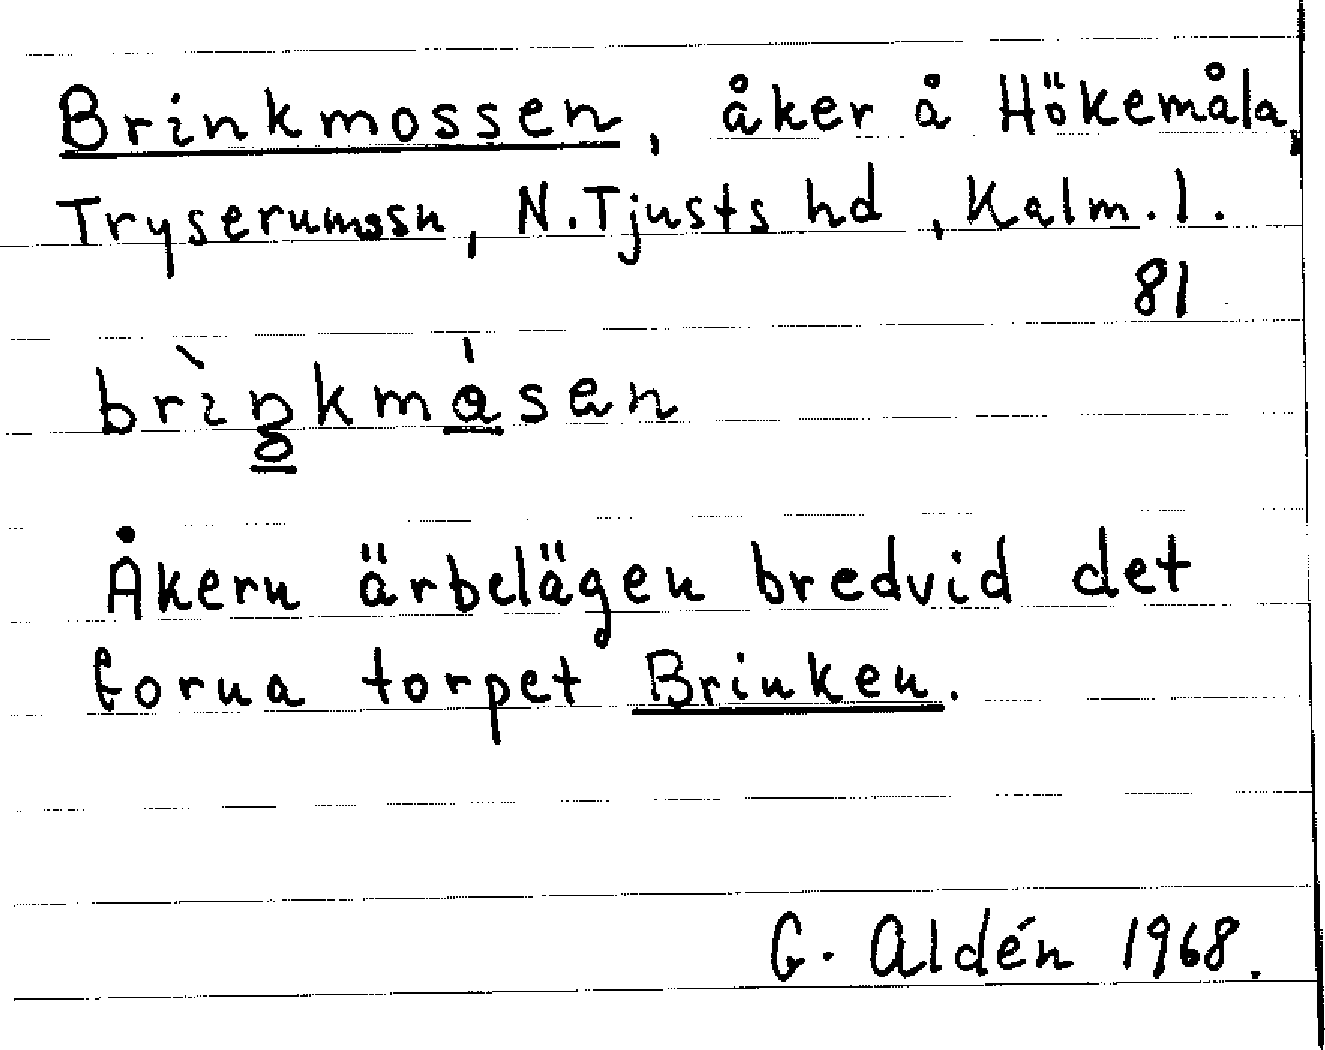 Brinkmossen, åker å Hökemåla,
Tryserums sn, N. Tjusts hd, Kalm. l.
81
brìŋkmǻsen
Åkern är belägen bredvid det
forna torpet Brinken.
G. Aldén 1968.